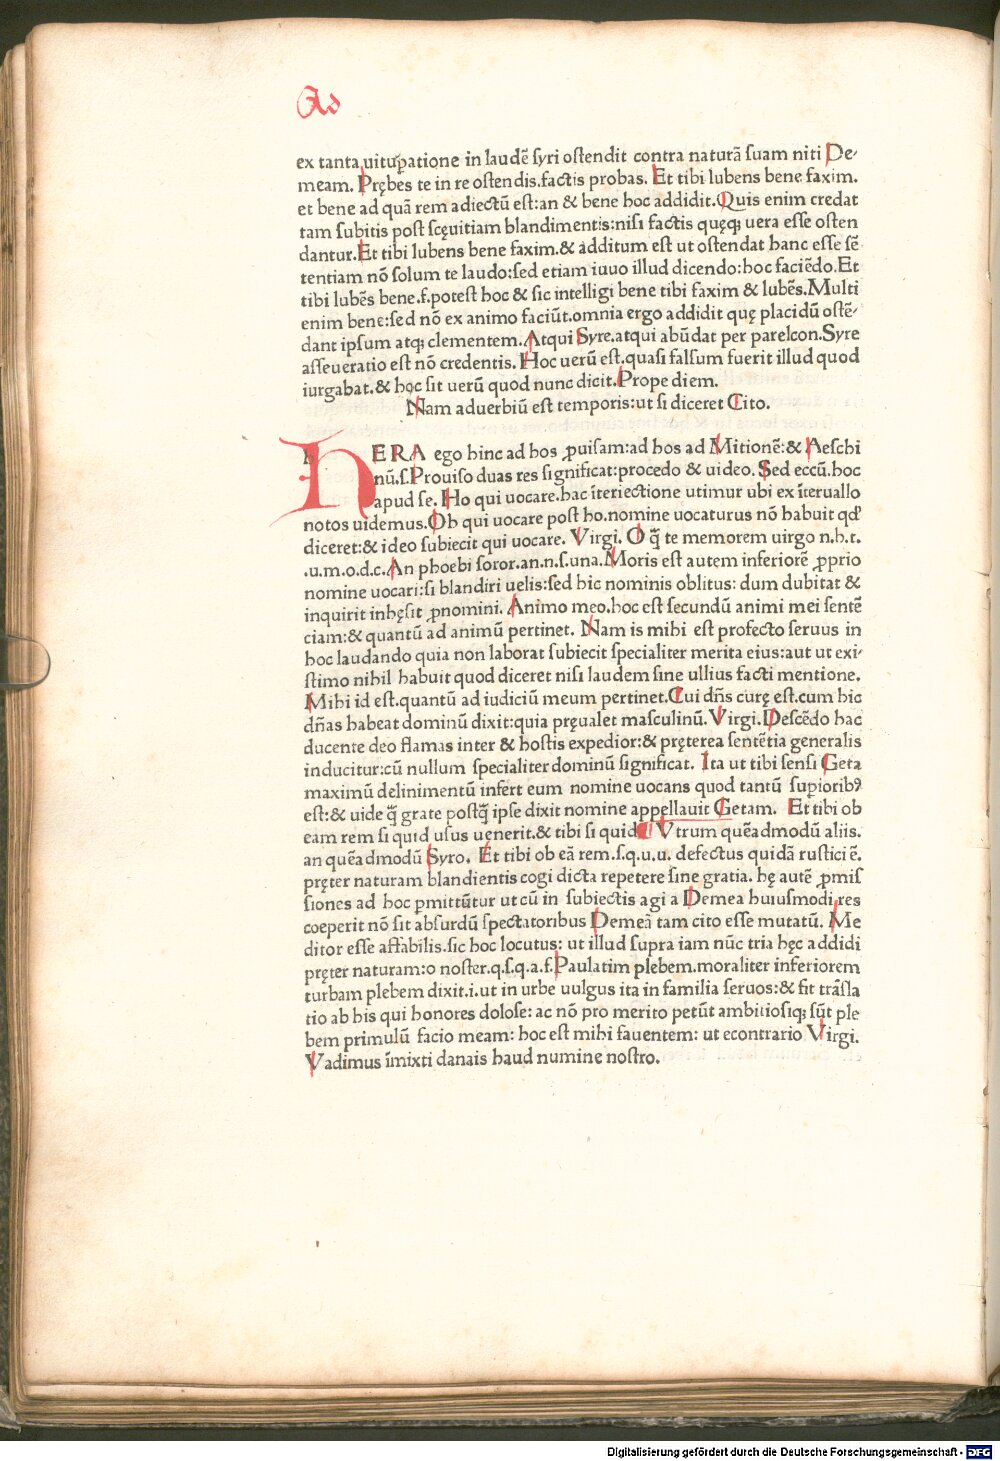 Ad
ex tanta uituꝑatione in laudẽ ſyri oſtendit contra naturã ſuam niti De⸗
meam. Prębes te in re oſtendis.factis probas. Et tibi lubens bene faxim.
et bene ad quã rem adiectũ eſt:an & bene hoc addidit.Quis enim credat
tam ſubitis poſt ſcęuitiam blandimentis:niſi factis quęqꝫ uera eſſe oſten
dantur.Et tibi lubens bene faxim.& additum eſt ut oſtendat hanc eſſe ſẽ
tentiam nõ ſolum te laudo:ſed etiam iuuo illud dicendo:hoc faciẽdo.Et
tibi lubẽs bene.f.poteſt hoc & ſic intelligi bene tibi faxim & lubẽs.Multi
enim bene:ſed nõ ex animo faciũt.omnia ergo addidit quę placidũ oſtẽ⸗
dant ipſum atqꝫ clementem.Atqui Syre.atqui abũdat per parelcon.Syre
aſſeueratio eſt nõ credentis. Hoc uerũ eſt.quaſi falſum fuerit illud quod
iurgabat.& hoc ſit uerũ quod nunc dicit.Prope diem.
Nam aduerbiũ eſt temporis:ut ſi diceret Cito.
HERA ego hinc ad hos ꝓuiſam:ad hos ad Mitionẽ:& Aeſchi
nũ.ſ.Prouiſo duas res ſignificat:procedo & uideo. Sed eccũ.hoc
apud ſe. Ho qui uocare.hac ĩteriectione utimur ubi ex ĩteruallo
notos uidemus.Oh qui uocare poſt ho.nomine uocaturus nõ habuit qđ
diceret:& ideo ſubiecit qui uocare. Virgi. O q̃ te memorem uirgo n.h.t.
.u.m.o.d.c.An phoebi ſoror.an.n.ſ.una.Moris eſt autem inferiorẽ ꝓprio
nomine uocari:ſi blandiri uelis:ſed hic nominis oblitus: dum dubitat &
inquirit inhęſit ꝓnomini. Animo meo.hoc eſt ſecundũ animi mei ſentẽ
ciam:& quantũ ad animũ pertinet. Nam is mihi eſt profecto ſeruus in
hoc laudando quia non laborat ſubiecit ſpecialiter merita eius:aut ut exi⸗
ſtimo nihil habuit quod diceret niſi laudem ſine ullius facti mentione.
Mihi id eſt.quantũ ad iudiciũ meum pertinet.Cui dñs curę eſt.cum hic
dñas habeat dominũ dixit:quia pręualet maſculinũ. Virgi.Deſcẽdo hac
ducente deo flamas inter & hoſtis expedior:& pręterea ſentẽtia generalis
inducitur:cũ nullum ſpecialiter dominũ ſignificat. Ita ut tibi ſenſi Geta
maximũ delinimentũ infert eum nomine uocans quod tantũ ſupioribꝰ
eſt:& uide q̃ grate poſtq̃ ipſe dixit nomine appellauit Getam. Et tibi ob
eam rem ſi quid uſus uenerit.& tibi ſi quid ¶ Vtrum quẽadmodũ aliis.
an quẽadmodũ Syro. Et tibi ob eã rem.ſ.q.u.u. defectus quidã ruſtici ẽ.
pręter naturam blandientis cogi dicta repetere ſine gratia. hę autẽ ꝓmiſ
ſiones ad hoc ꝓmittũtur ut cũ in ſubiectis agi a Demea huiuſmodi res
coeperit nõ ſit abſurdũ ſpectatoribus Demeã tam cito eſſe mutatũ. Me
ditor eſſe affabilis.ſic hoc locutus: ut illud ſupra iam nũc tria hęc addidi
pręter naturam:o noſter.q.ſ.q.a.f.Paulatim plebem.moraliter inferiorem
turbam plebem dixit.i.ut in urbe uulgus ita in familia ſeruos:& fit trãſla
tio ab his qui honores doloſe: ac nõ pro merito petũt ambitioſiqꝫ ſũt ple
bem primulũ facio meam: hoc eſt mihi fauentem: ut econtrario Virgi.
Vadimus ĩmixti danais haud numine noſtro.
Digitalisierung gefördert durch die Deutsche Forschungsgemeinschaft - DFG